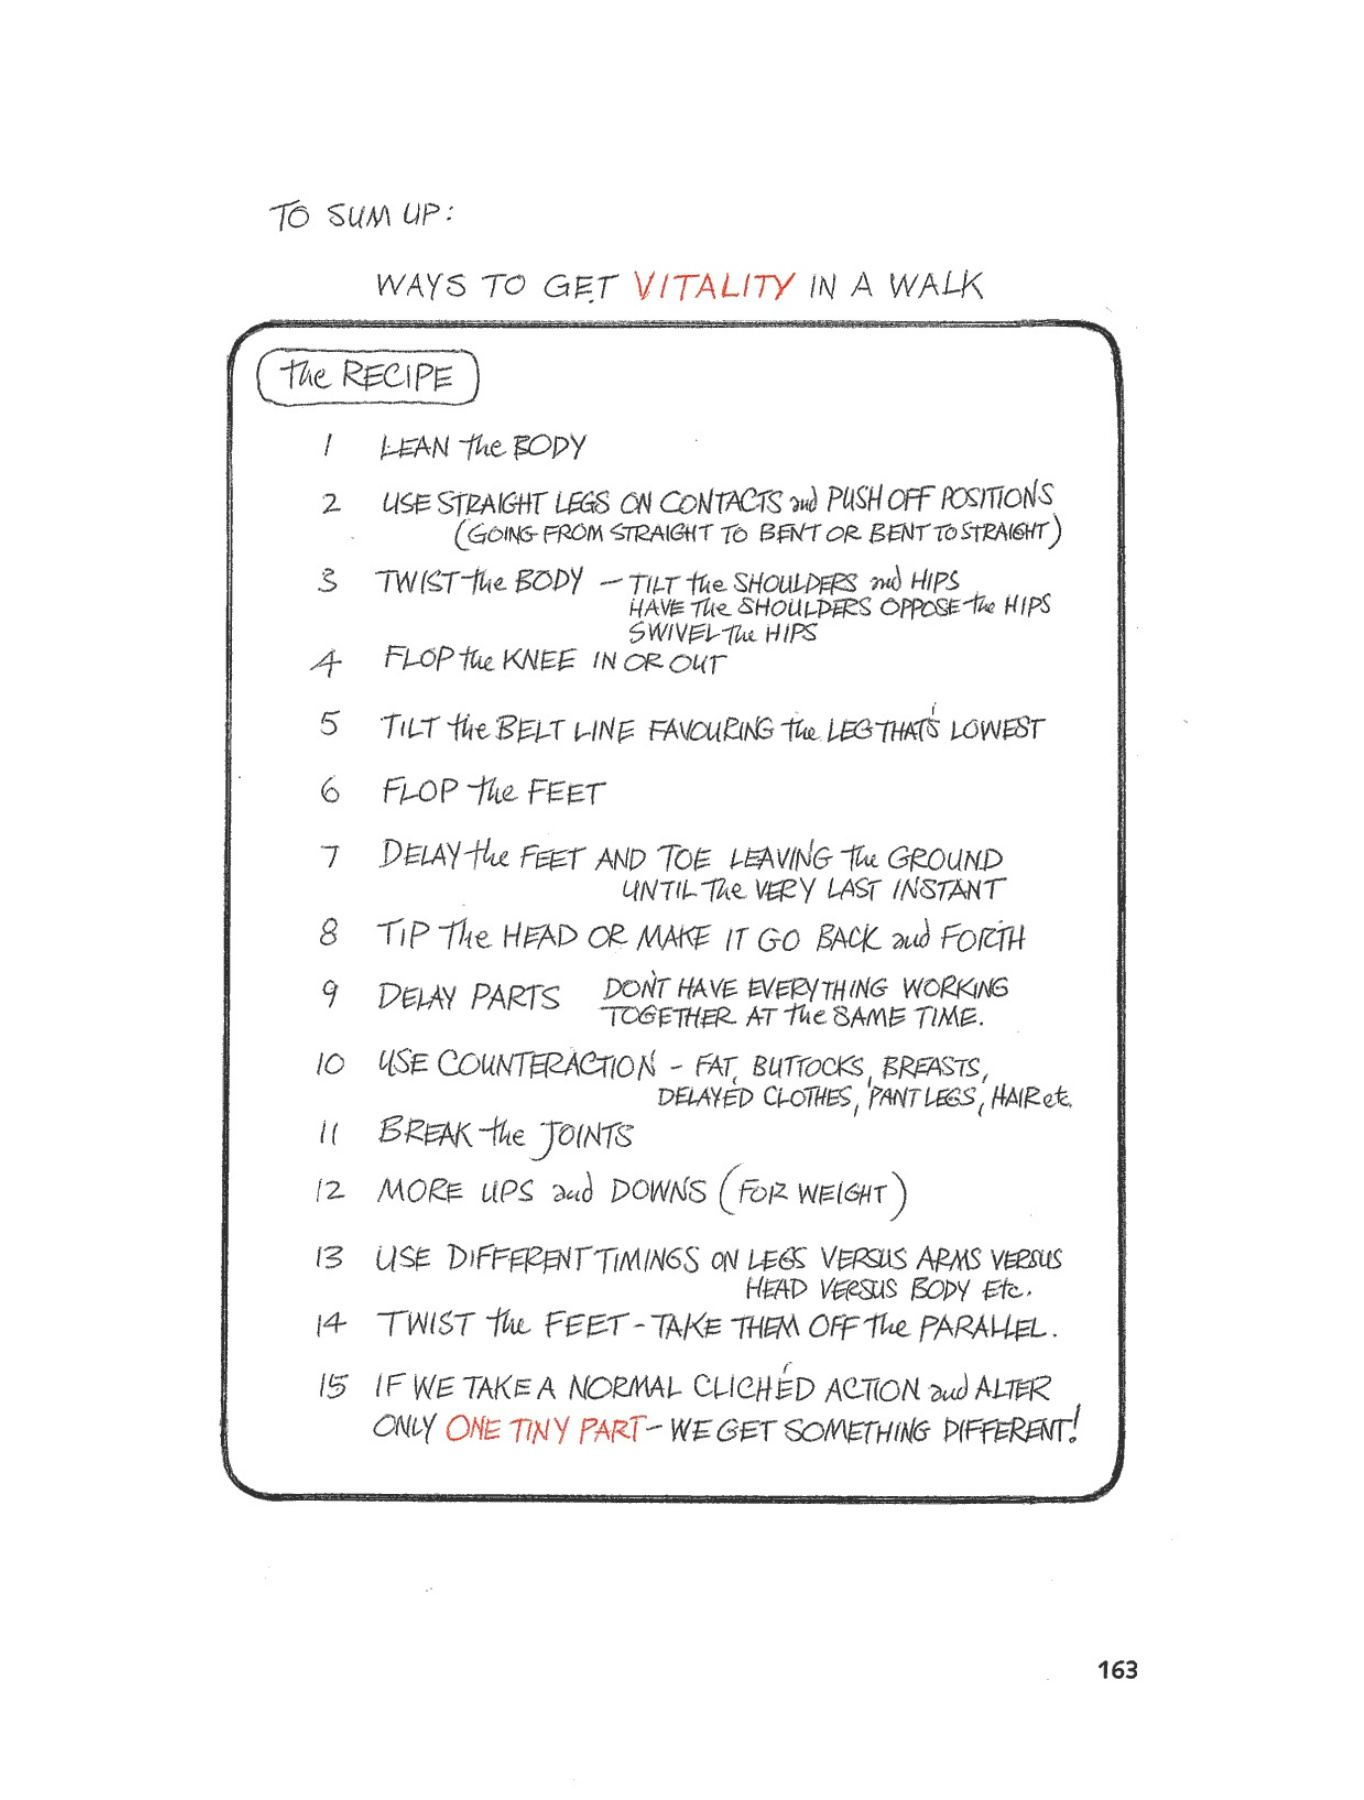 TO SUM UP:
WAYS TO GET VITALITY IN A WALK
the RECIPE
1 LEAN the BODY
2 USE STRAIGHT LEGS ON CONTACTS and PUSH OFF POSITIONS
(GOING FROM STRAIGHT TO BENT OR BENT TO STRAIGHT)
3 TWIST the BODY – TILT the SHOULDERS and HIPS
HAVE The SHOULDERS OPPOSE the HIPS
SWIVEL The HIPS
4 FLOP the KNEE IN OR OUT
5 TILT the BELT LINE FAVOURING the LEG THAT'S LOWEST
6 FLOP the FEET
7 DELAY the FEET AND TOE LEAVING The GROUND
UNTIL The VERY LAST INSTANT
8 TIP The HEAD OR MAKE IT GO BACK and FORTH
9 DELAY PARTS DON'T HAVE EVERYTHING WORKING
TOGETHER AT the SAME TIME.
10 USE COUNTERACTION - FAT, BUTTOCKS, BREASTS,
DELAYED CLOTHES, PANT LEGS, HAIR etc.
11 BREAK the JOINTS
12 MORE UPS and DOWNS (FOR WEIGHT)
13 USE DIFFERENT TIMINGS ON LEGS VERSUS ARMS VERSUS
HEAD VERSUS BODY Etc.
14 TWIST the FEET - TAKE THEM OFF The PARALLEL.
15 IF WE TAKE A NORMAL CLICHÉD ACTION and ALTER
ONLY ONE TINY PART – WE GET SOMETHING DIFFERENT!
163